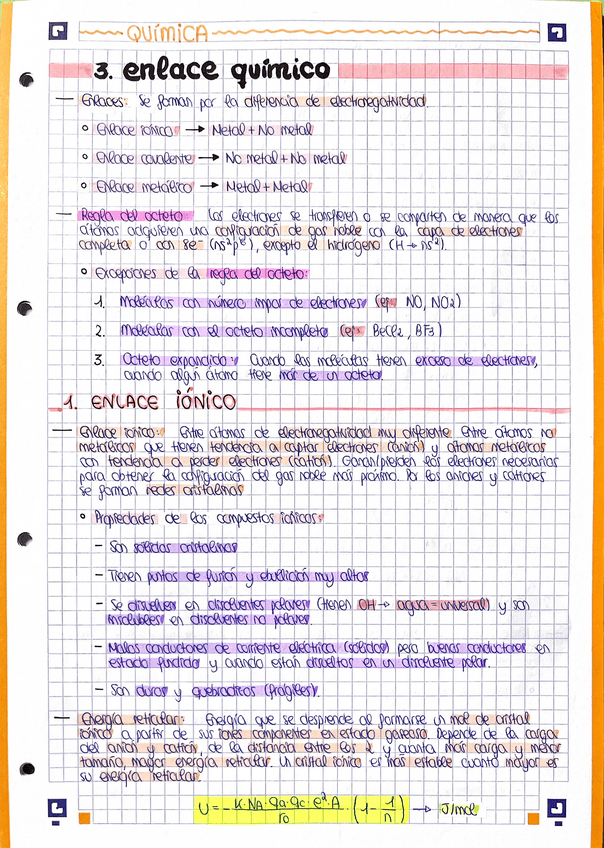 QUÍMICA
3. enlace químico
— Enlaces: Se forman por la diferencia de electronegatividad.
° Enlace iónico → Metal + No metal
° Enlace covalente → No metal + No metal
° Enlace metálico → Metal + Metal
— Regla del octeto Los electrones se transfieren o se comparten de manera que los
átomos adquieren una configuración de gas noble con la capa de electrones
completa o con 8e⁻ (ns²p⁶), excepto el hidrógeno (H → ns²).
° Excepciones de la regla del octeto:
1. Moléculas con número impar de electrones (ej: NO, NO2)
2. Moléculas con el octeto incompleto (ej: BeCl2, BF3)
3. Octeto expandido: Cuando las moléculas tienen exceso de electrones,
cuando algún átomo tiene más de un octeto.
1. ENLACE IÓNICO
— Enlace iónico: Entre átomos de electronegatividad muy diferente. Entre átomos no
metálicos que tienen tendencia a captar electrones (anión) y átomos metálicos
con tendencia a perder electrones (catión). Ganan/pierden los electrones necesarios
para obtener la configuración del gas noble más próximo. Por los aniones y cationes
se forman redes cristalinas
° Propiedades de los compuestos iónicos:
– Son sólidos cristalinos
– Tienen puntos de fusión y ebullición muy altos
– Se disuelven en disolventes polares (tienen OH → agua = universal) y son
insolubles en disolventes no polares.
– Malos conductores de corriente eléctrica (sólidos) pero buenos conductores en
estado fundido y cuando están disueltos en un disolvente polar.
– Son duros y quebradizos (frágiles).
— Energía reticular: Energía que se desprende al formarse un mol de cristal
iónico a partir de sus iones componentes en estado gaseoso. Depende de la carga
del anión y catión, de la distancia entre los 2 y cuanta más carga y menor
tamaño, mayor energía reticular. Un cristal iónico es más estable cuanto mayor es
su energía reticular.
U = - K·NA·qa·qc·e²·A / r0 · (1 - 1/n) → J/mol